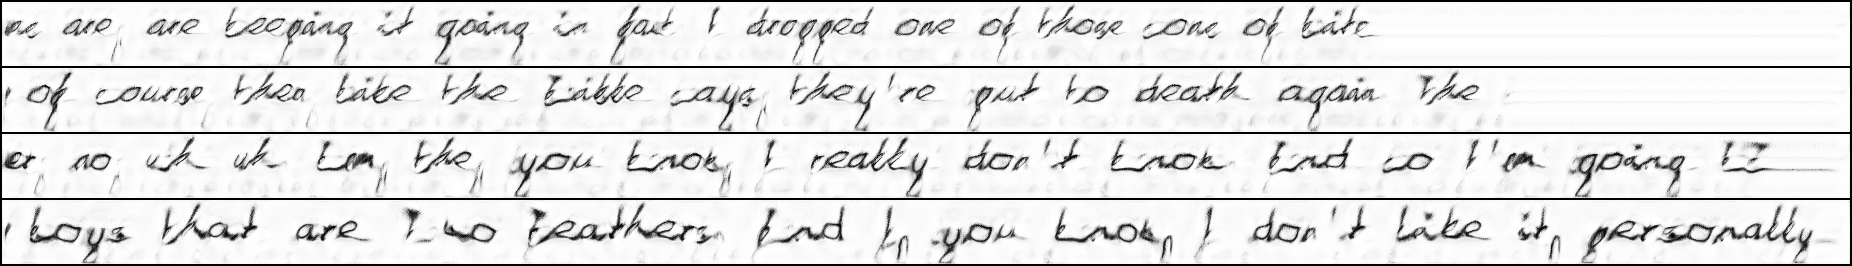 are, are keeping it going in fact I dropped one of those one of
of course then like the says, they're put to death again The
er, no, uh uh the, you know, I really don't know And so I'm going
boys that are Two Feathers. And I, you know, I don't like it, personally